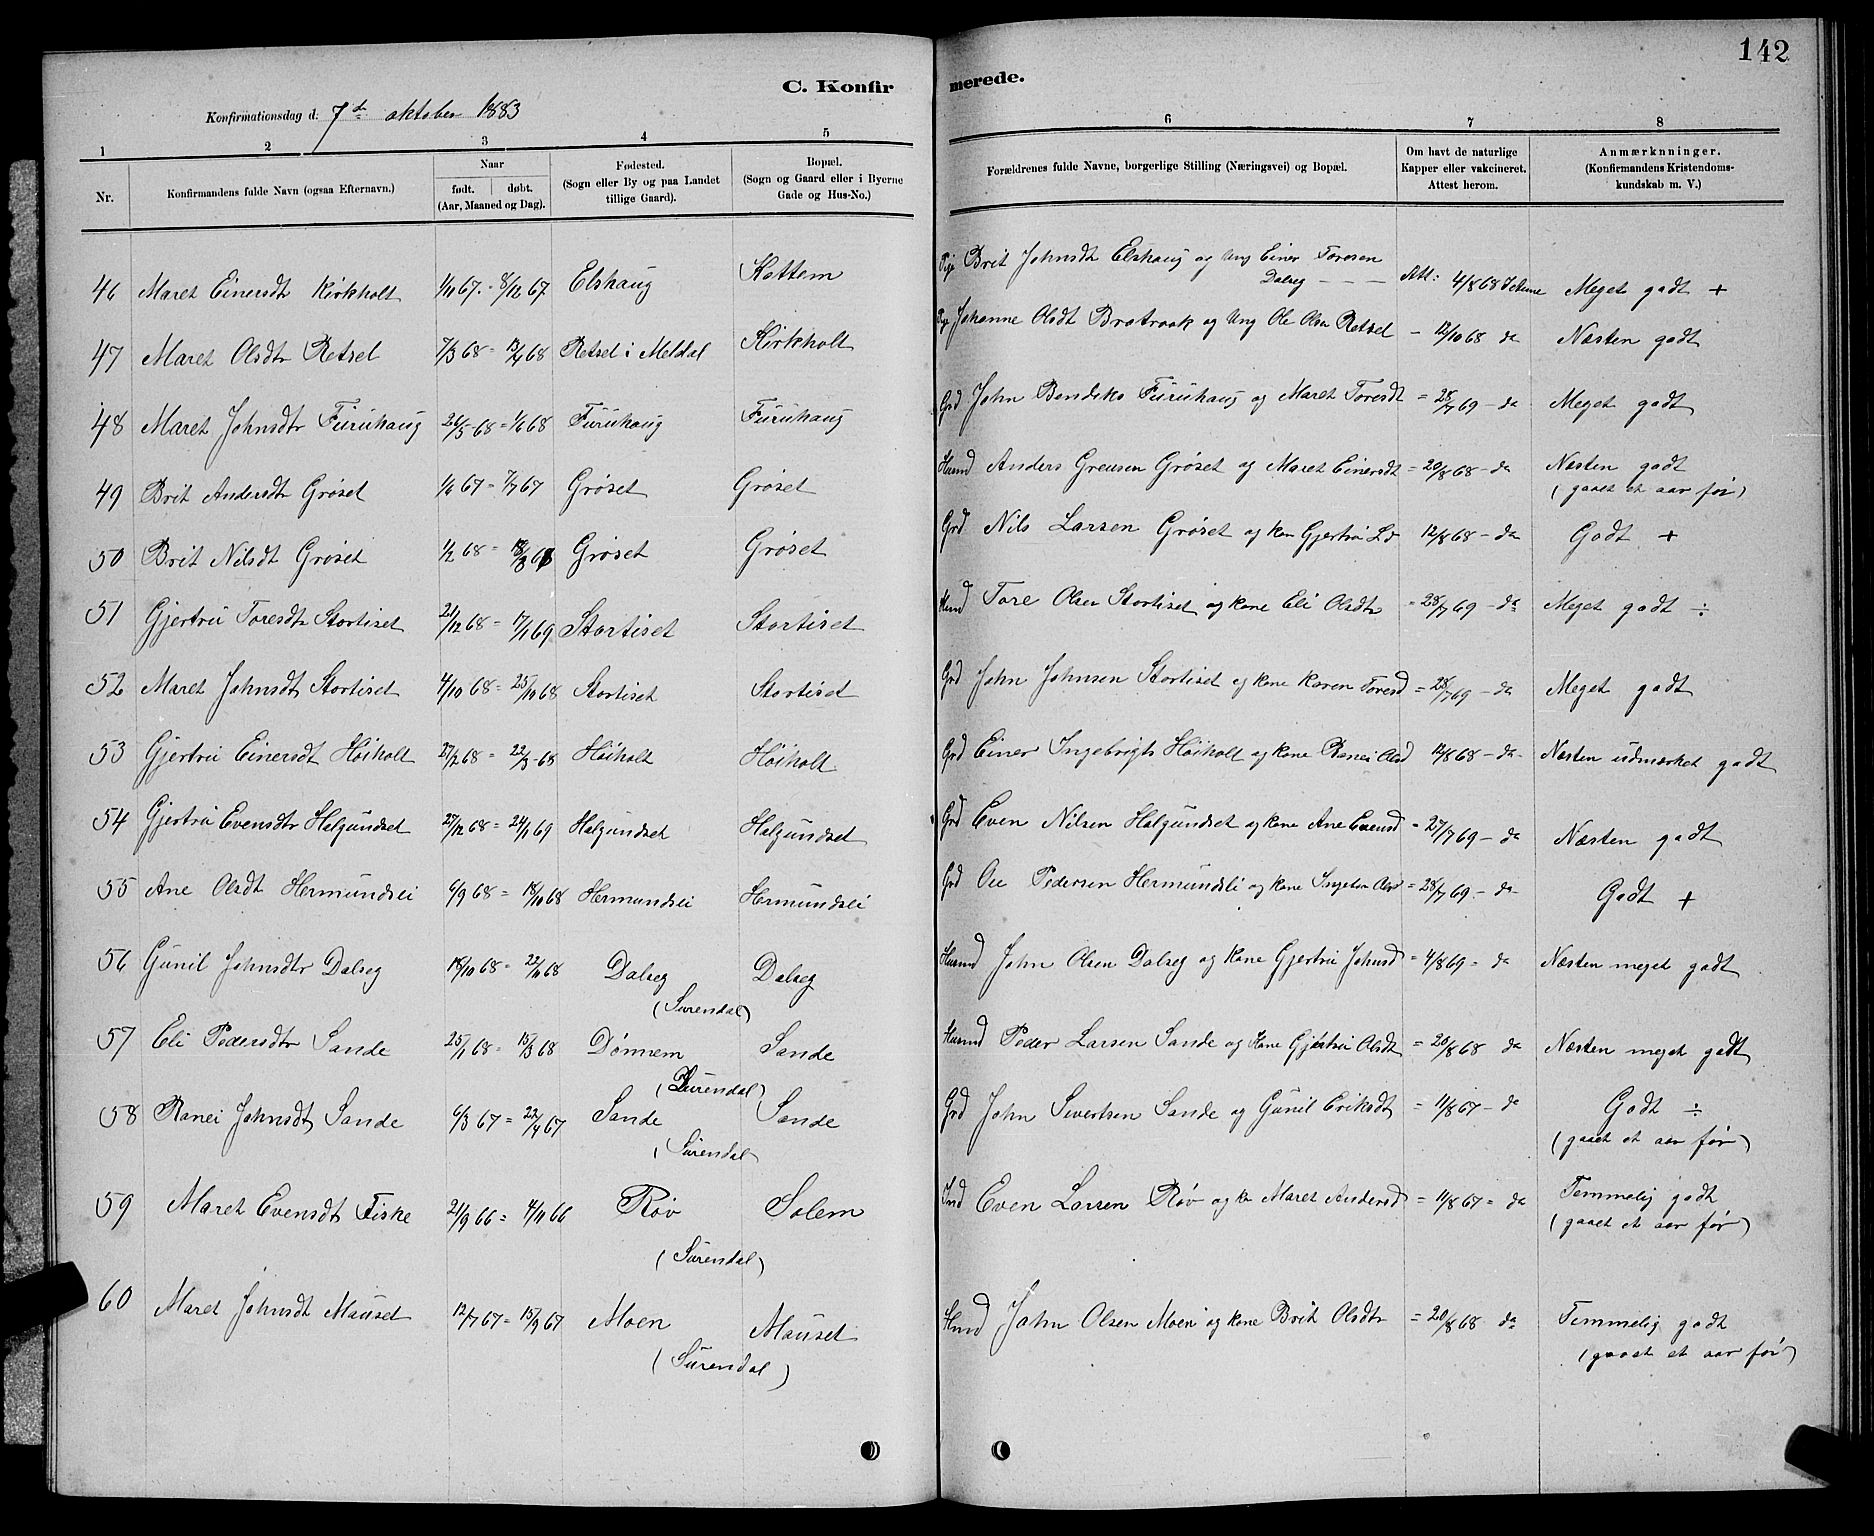 142
C. Konfir merede.
Konfirmationsdag d. 7de oktober 1883
1 2 3 4 5 6 7 8
Nr. Konfirmandens fulde Navn (ogsaa Efternavn.) Naar født. døbt. (Aar, Maaned og Dag). Fødested. (Sogn eller By og paa Landet tillige Gaard). Bopæl. (Sogn og Gaard eller i Byerne Gade og Hus-No.) Forældrenes fulde Navne, borgerlige Stilling (Næringsvei) og Bopæl. Om havt de naturlige Kapper eller vakcineret. Attest herom. Anmærkninger. (Konfirmandens Kristendomskundskab m. V.)
46 Maret Einersdtr Kirkholt 1/11 67 - 8/12 67 Elshaug Kattem Pige Brit Johnsdt Elshaug og Ung Einer Toresen Dalseg Att: 4/8 68 Meget godt +
47 Maret Olsdtr Retsel 7/3 68 = 13/4 68 Retsel i Meldal Kirkholt Johanne Olsdt Bratraak og Ung Ole Olsn Retsel - 12/10 68 da Næsten godt
48 Maret Johnsdtr Furuhaug 26/5 68 = 1/6 68 Furuhaug Furuhaug Grd John Bendiks Furuhaug og Maret Toresdt = 28/7 69 - da Meget godt
49 Brit Andersdtr Grøset 1/6 67 = 7/7 67 Grøset Grøset Husmd Anders Greusen Grøset og Maret Einersdt = 20/8 68 - da Næsten godt
(gaaet et aar før)
50 Brit Nilsdt Grøset 1/2 68 = 18/3 68 Grøset Grøset Grd Nils Larsen Grøset og kon Gjertru Ld 12/8 68 - da Godt +
51 Gjertru Toresdtr Stortiset 21/12 68 = 17/1 69 Stortiset Stortiset Hmd Tore Olsen Stortiset og kone Eli Olsdtr = 28/7 69 - da Meget godt ÷
52 Maret Johnsdt Stortiset 4/10 68 = 25/10 68 Stortiset Stortiset Grd John Johnsen Stortiset og kone Karen Toresd = 28/7 69 - da Meget godt
53 Gjertru Einersdt Høiholt 27/2 68 = 22/3 68 Høiholt Høiholt Grd Einer Ingebrigts Høiholt og kone Ranei Olsd 12/8 68 - da Næsten udmærket godt
54 Gjertru Evensdtr Halgundset 27/12 68 = 24/1 69 Halgundset Halgundset Grd Even Nilsen Halgundset og kone Ane Evensd = 27/7 69 - da Næsten godt
55 Ane Olsdt Hermundslei 6/9 68 = 18/10 68 Hermundslei Hermundslei Grd Ole Pedersen Hermundsli og kone Ingebor Olsd = 28/7 69 - da Godt +
56 Gunil Johnsdtr Dalseg 18/10 68 = 22/11 68 Dalseg (Surendal) Dalseg Husmd John Olsen Dalseg og kone Gjertru Johnsd = 4/8 69 - da Næsten meget godt
57 Eli Pedersdtr Sande 25/1 68 = 15/3 68 Dønnem (Surendal) Sande Husmd Peder Larsen Sande og Kone Gjertru Olsdt = 20/8 68 da Næsten meget godt
58 Ranei Johnsdt Sande 6/3 67 = 22/4 67 Sande (Surendal Sande Grd John Sivertsen Sande og Gunil Eriksdt = 11/8 67 - da Godt ÷
(gaaet et aar før)
59 Maret Evensdt Fiske 21/9 66 = 4/11 66 Røv (Surendal) Solem Ind Even Larsen Røv og ko Maret Andersd = 11/8 67 = da Temmelig godt
(gaaet et aar før)
60 Maret Johnsdt Mauset 12/7 67 = 15/9 67 Moen (Surendal) Mauset Hmd John Olsen Moen og kone Brit Olsdtr = 20/8 68 da Temmelig godt
(gaaet et aar før)